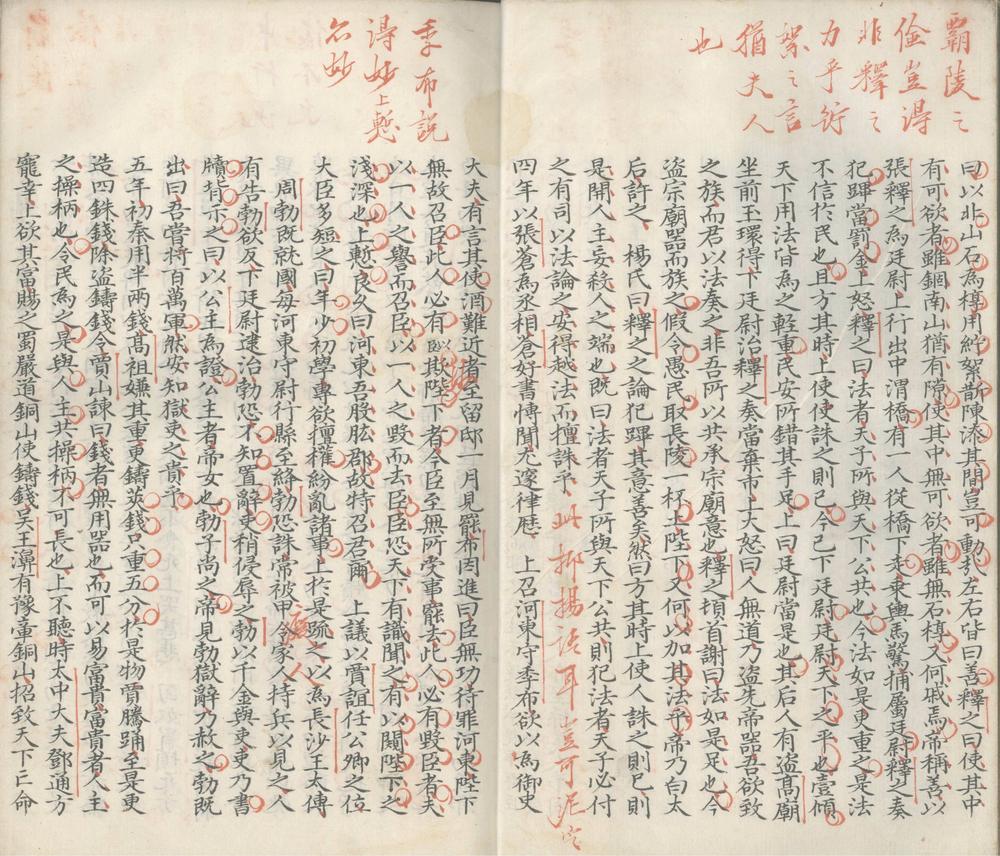 霸陵之
儉豈得
非釋之
力乎紵
絮之言
猶夫人
也
曰以北山石為椁用紵絮斮陳漆其間豈可動㢤左右皆曰善釋之曰使其中
有可欲者雖錮南山猶有隙使其中無可欲者雖無石椁又何戚焉帝稱善以
張釋之為廷尉上行出中渭橋有一人從橋下走乗輿馬驚捕屬廷尉釋之奏
犯蹕當罰金上怒釋之曰法者天子所與天下公共也今法如是更重之是法
不信於民也且方其時上使使誅之則已今已下廷尉廷尉天下之平也壹傾
天下用法皆為之輕重民安所錯其手足上曰廷尉當是也其后人有盗高廟
坐前玉環得下廷尉治釋之奏當棄市上大怒曰人無道乃盗先帝器吾欲致
之族而君以法奏之非吾所以共承宗廟意也釋之頓首謝曰法如是足也今
盗宗廟器而族之假令愚民取長陵一抔土陛下又何以加其法乎帝乃白太
后許之 楊氏曰釋之之論犯蹕其意善矣然曰方其時上使人誅之則已則
是開人主妄殺人之端也既曰法者天子所與天下公共則犯法者天子必付
之有司以法論之安得越法而擅誅乎 此郝揚語耳豈可泥定
四年以張蒼為丞相蒼好書博聞尤邃律厯 上召河東守季布欲以為御史
季布説
得妙上慙
亦妙
大夫有言其使酒難近者至留邸一月見罷布因進曰臣無功待罪河東陛下
無故召臣此人必有以欺陛下者今臣至無所受事罷去此人必有毁臣者夫
以一人之譽而召臣以一人之毁而去臣臣恐天下有識聞之有以闚陛下之
淺深也上慙良久曰河東吾股肱郡故特召君爾 上議以賈誼任公卿之位
大臣多短之曰年少初學專欲擅權紛亂諸事上於是疏之以為長沙王太傅
周勃既就國每河東守尉行縣至絳勃恐誅常被甲令家人持兵以見之人
有告勃欲反下廷尉逮治勃恐不知置辭吏稍侵辱之勃以千金與吏吏乃書
牘背示之曰以公主為證公主者帝女也勃子尚之帝見勃獄辭乃赦之勃既
出曰吾嘗將百萬軍然安知獄吏之貴乎
五年初秦用半兩錢高祖嫌其重更鑄莢錢只重五分於是物賈騰踊至是更
造四銖錢除盗鑄錢令賈山諫曰錢者無用器也而可以易富貴富貴者人主
之操柄也令民為之是與人主共操柄不可長也上不聽時太中大夫鄧通方
寵幸上欲其富賜之蜀嚴道銅山使鑄錢吴王濞有豫章銅山招致天下亡命